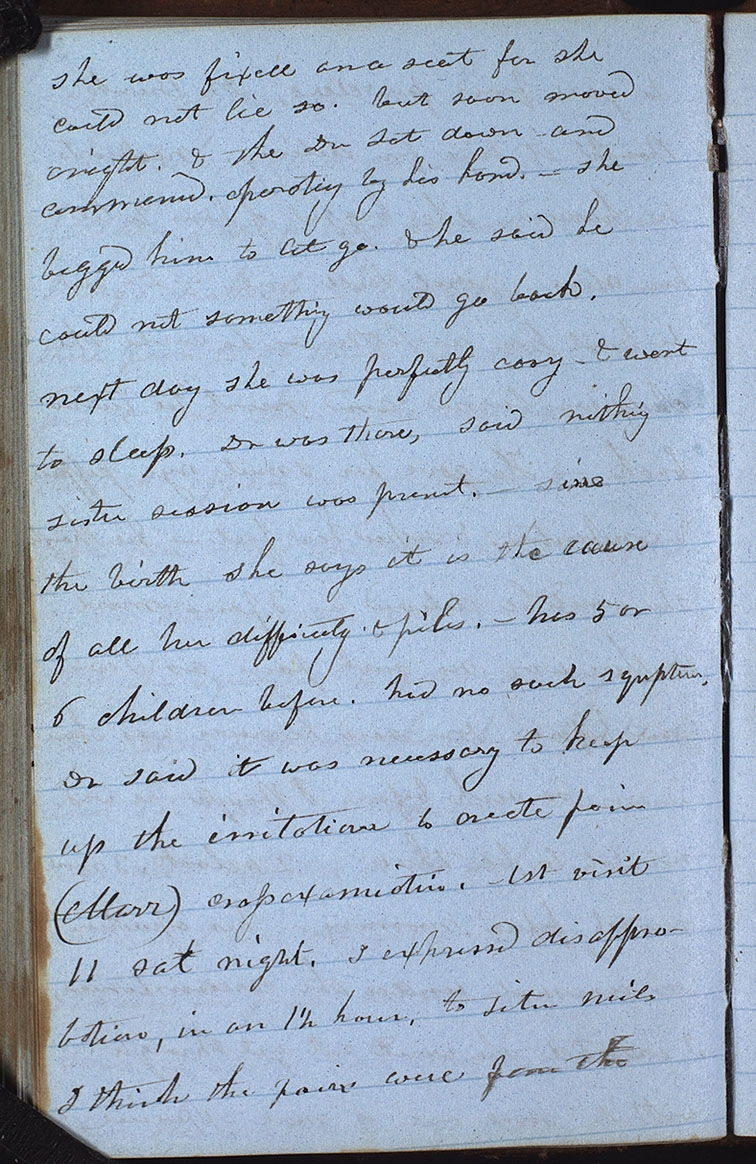 she was fixed on a seat for she
could not lie so. but soon moved
aright. & the Dr set down and
commenc'd. operating by his hand. - she
begg'd him to let go. & he said he
could not something would go back.
next day she was perfectly easy - & went
to sleep. Dr was there, said nothing
sister session was present. - since
the birth she says it is the cause
of all her difficulty & piles. - has 5 or
6 children before. had no such symptoms.
Dr said it was necessary to keep
up the irritation to create pain
(Marr) crossexamiotin. - 1st visit
11 sat night. I expressed disappro-
bation, in an 1/2 hour, to sister
I think the pains were from the